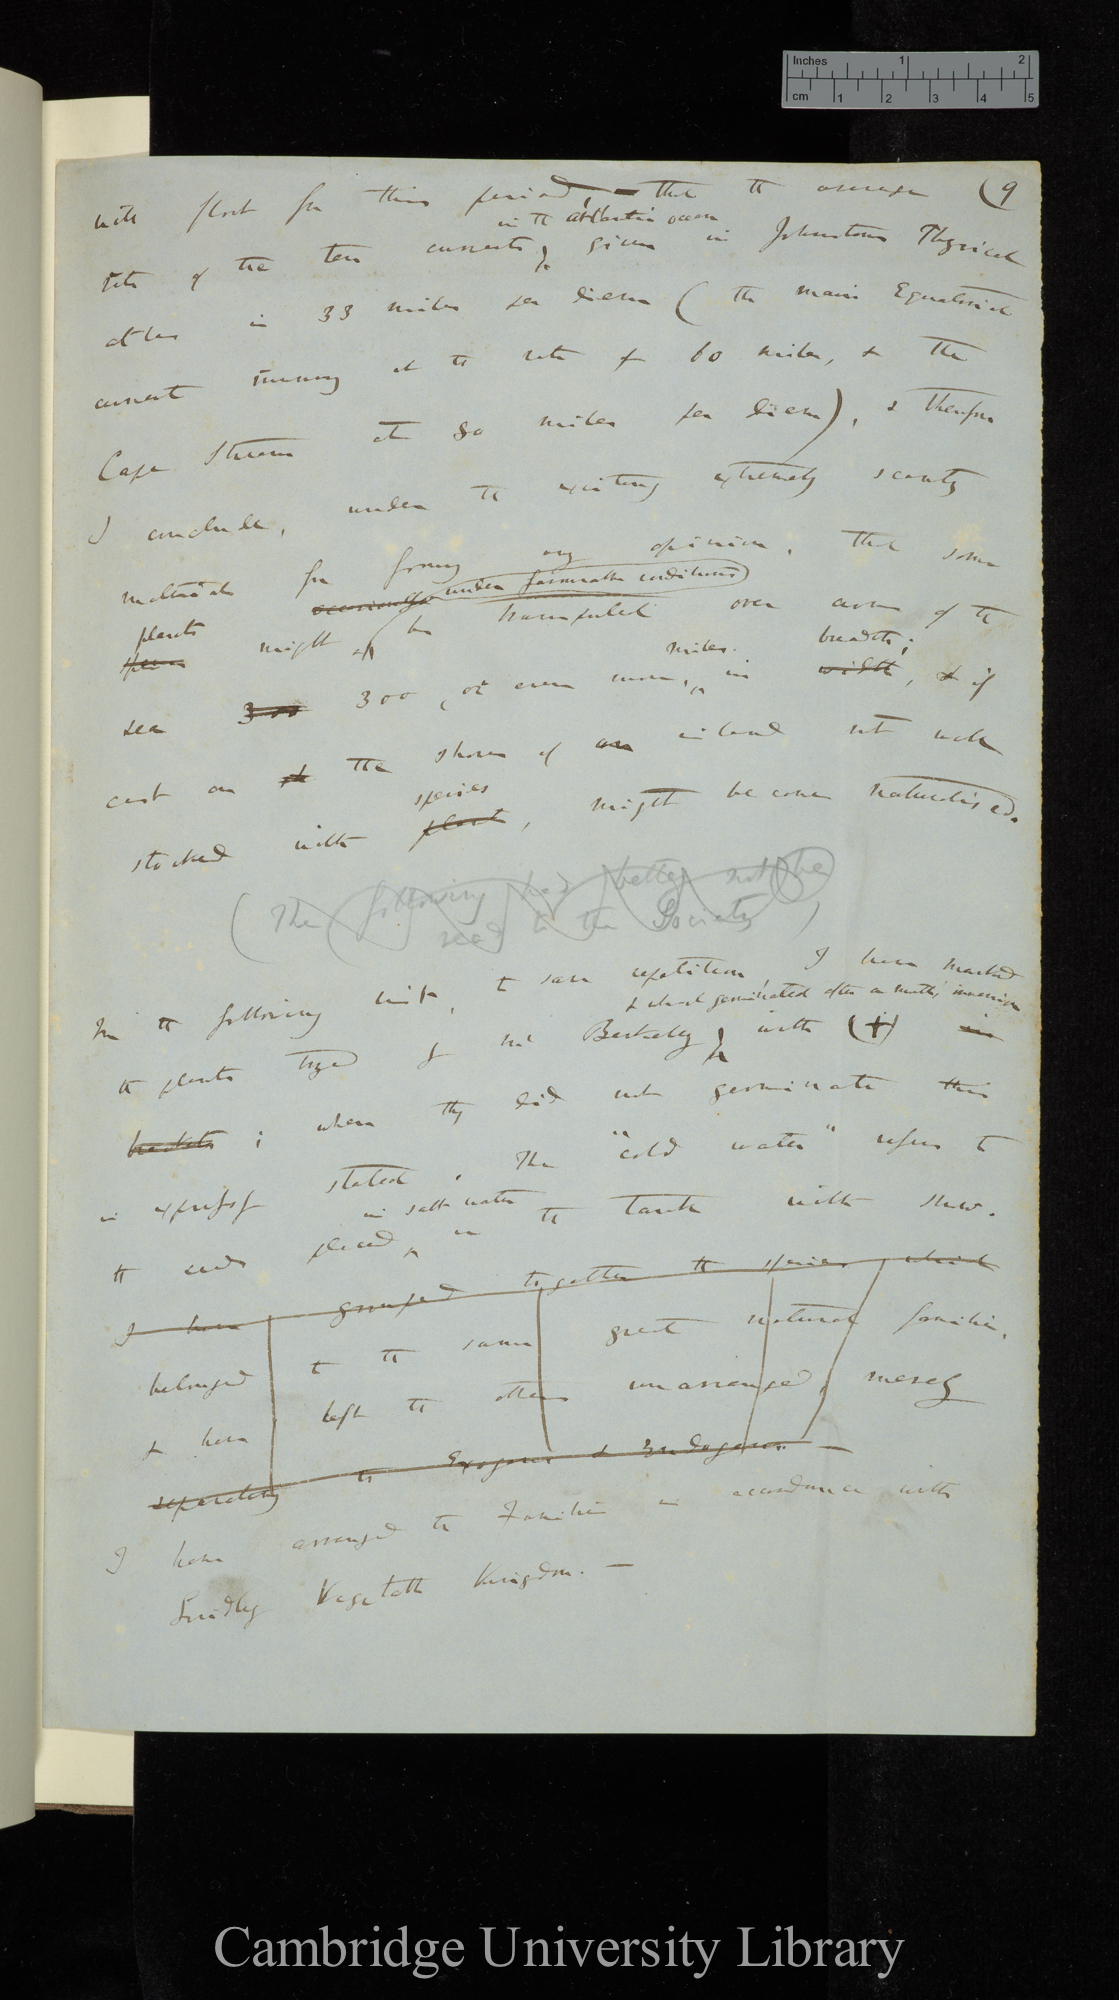 Inches 1 2
cm 1 2 3 4 5
(9
will float for this period, — that the average
in the atlantic ocean
rate of the ten currents given in Johnston's Physical
atlas is 33 miles per diem (the main Equatorial
current running at the rate of 60 miles, & the
Cape Stream at 80 miles per diem), & therefore
I conclude, under the existing extremely scanty
materials for forming any opinion, that some
occasionally under favourable conditions
plants might be transported over arms of the
sea 300 300, or even more, miles. in width breadth; , & if
cast on the shores of an island not well
species
stocked with plant, might become naturalised.
(The following had better not be
read to the Society)
In the following list, to save repetition, I have marked
& which germinated after a month's immersion
the plants tryed by Mr Berkeley with (+) in
brackets; when they did not germinate this
is expressly stated. The "cold water" refers to
in salt water
the seeds placed in the tank with snow.
I have grouped together the species which
belonged to the same great natural families,
& have left the others unarranged, merely
separating the Exogens & Endogens. —
I have arranged the Families in accordance with
Lindley Vegetable Kingdom. —
Cambridge University Library